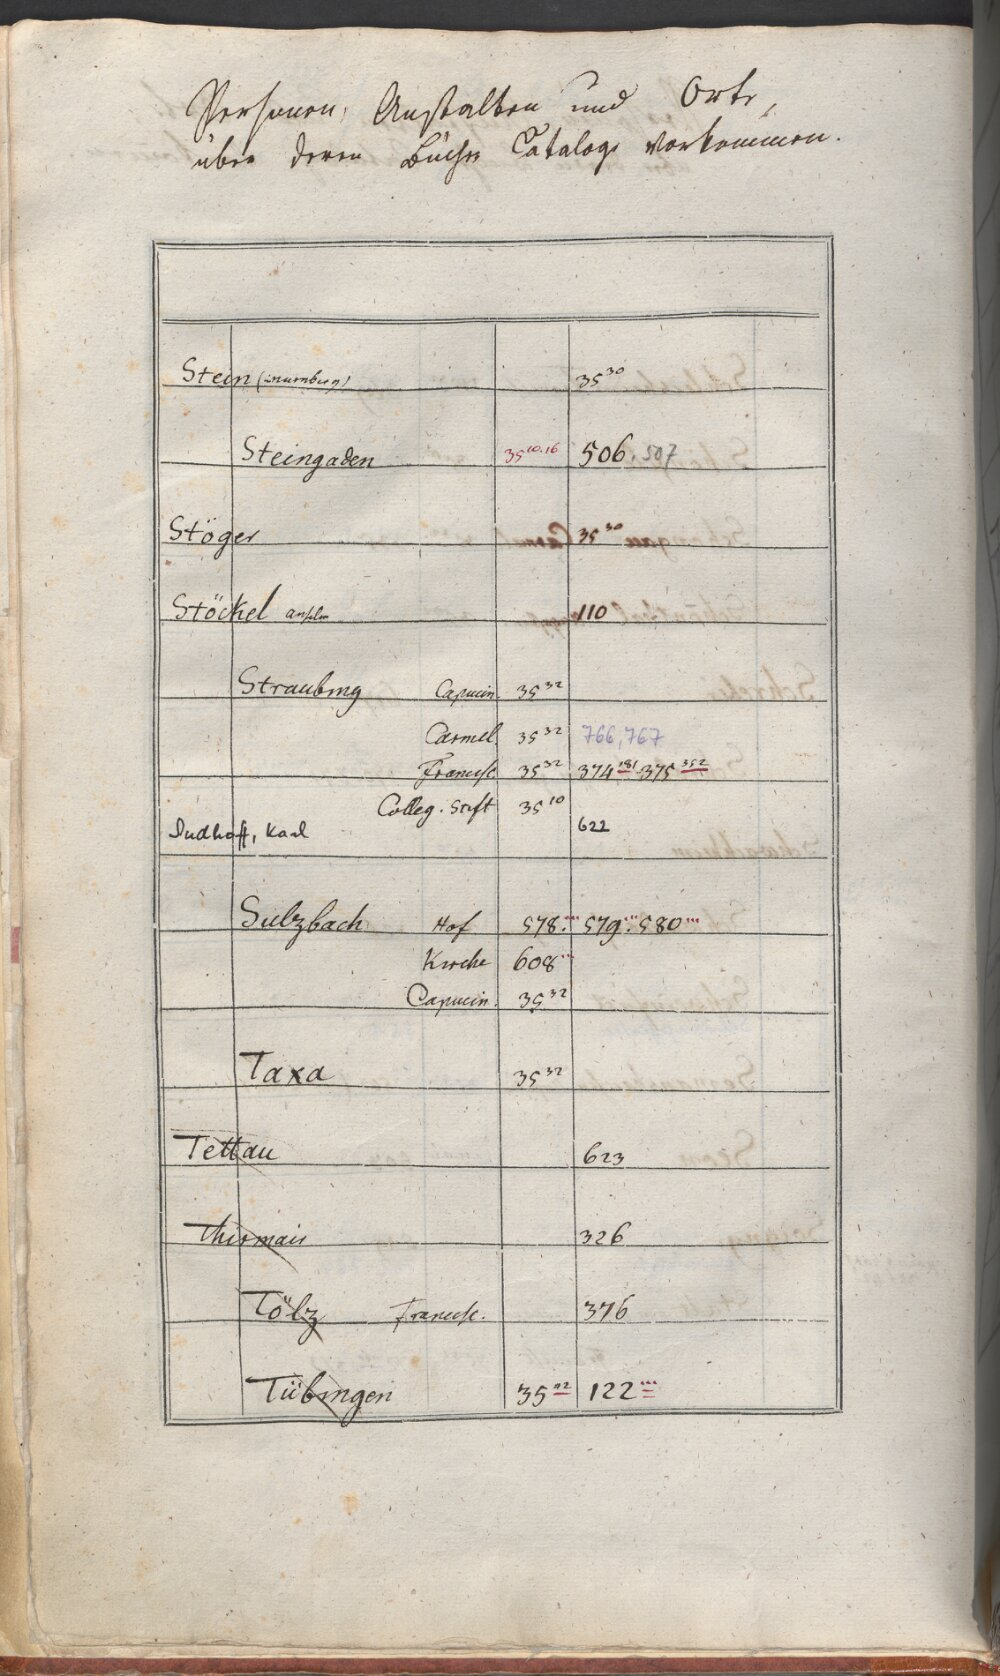 Personen, Anstalten und Orte,
über deren Bücher Cataloge vorkommen.
Stein (in nurnberg) 35³⁰
Steingaden 35¹⁰·¹⁶ 506, 507
Stöger 35³⁰
Stöckel anselm 110
Straubing Capucin. 35³²
Carmel. 35³² 766, 767
Francisc. 35³² 374¹⁸¹ 375³⁵²
Colleg. Stift 35¹⁰
Sudhoff, Karl 622
Sulzbach Hof 578. 579. 580
Kirche 608
Capucin. 35³²
Taxa 35³²
Tettau 623
Thirmair 326
Tölz Francisc. 376
Tübingen 35 122